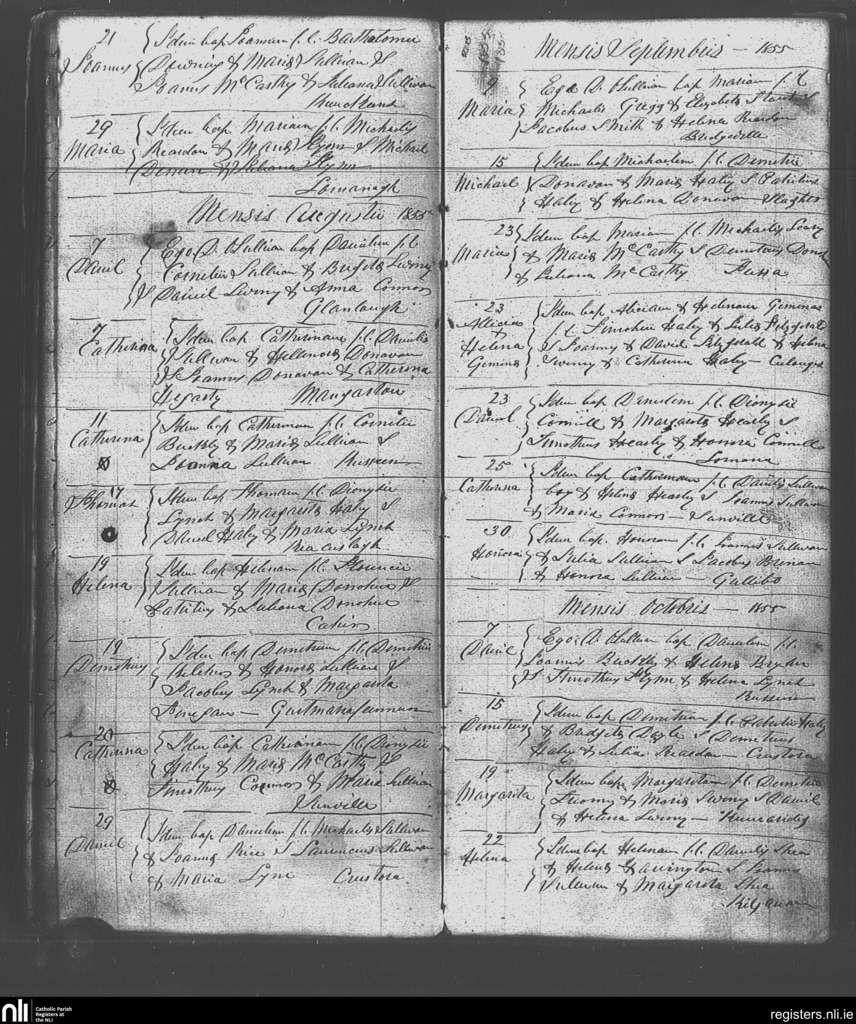 21
Joannes
Idem bap Joannem f.l. Bartholomei
Downing & Maria Sullivan S
Joannes McCarthy & Juliana Sullivan
29
Maria
Idem bap Mariam f.l. Michaelis
Reardon & Maria Flynn S Michael
& Juliana Flynn
Lomanagh
Mensis Augusti 1855
7
Daniel
Ego D. OSullivan bap Danielem f.l.
Cornelius Sullivan & Brigida Twomy
S Daniel Twomy & Anna Connors
Glanlough
7
Catherina
Idem bap Catherinam f.l. Danielis
Sullivan & Hellenora Donovan
S Joannes Donovan & Catherina
Hegarty Mangarton
11
Catherina
Idem bap Catherinam f.l. Cornelii
Buckly & Maria Sullivan S
Joanna Sullivan Russeen
17
Thomas
Idem bap Thomam f.l. Dionysii
Lynch & Margarita Haly S
Daniel Haly & Maria Lynch
19
Helena
Idem bap Helenam f.l. Florencii
Sullivan & Maria Donohue S
& Juliana Donohue
Cahir
19
Demetrius
Idem bap Demetrium f.l. Demetrii
& Honora Sullivan S
Jacobus Lynch & Margarita
Finegan —
20
Catherina
Idem bap Catherinam f.l. Dionysii
Haly & Maria McCarthy S
Timothy Connors & Maria Sullivan
Sunville
29
Daniel
Idem bap Danielem f.l. Michaelis Sullivan
& Joanna Rice S Laurencius Sullivan
& Maria Lyne Crustora
Mensis Septembris — 1855
Maria
Ego D. OSullivan bap Mariam f.l.
Michaelis Gregg & Elizabeth
Jacobus Smith & Helena Reardon
Bridgeville
15
Michael
Idem bap Michaelem f.l. Demetrii
Donovan & Maria Haly S Patritius
Haly & Helena Donovan Slaghts
23
Maria
Idem bap Mariam f.l. Michaelis Leary
& Maria McCarthy S Demetrius
& Juliana McCarthy Russa
23
Alicia
&
Helena
Gemina
Idem bap Aliciam & Helenam Geminas
f.l. Timothei Haly & Julia Fitzgerald
S Joannes & David Fitzgerald & Helena
Twomy & Catherina Haly —
23
Daniel
Idem bap Danielem f.l. Dionysii
Connill & Margarita Hearly S
Timothius Hearly & Honora Connill
Lomana
25
Catherina
Idem bap Catherinam f.l. Danielis Sullivan
& Helena Hearly S Joannes Sullivan
& Maria Connors — Sunville
30
Honora
Idem bap. Honoram f.l. Joannis Sullivan
& Julia Sullivan S Jacobus Brenan
& Honora Sullivan —
Mensis Octobris — 1855
7
Daniel
Ego D. OSullivan bap Danielem f.l.
Joannis Buckley & Helena
S Timothy Flynn & Helena Lynch
Russeen
15
Demetrius
Idem bap Demetrium f.l. Patritii Haly
& Bridgida Doyle S Demetrius
Haly & Julia Reardon — Crustora
19
Margarita
Idem bap. Margaritam f.l. Demetrii
Twomy & Maria Twomy S Daniel
& Helena Twomy —
22
Helena
Idem bap Helenam f.l. Danielis Shea
& Helena Harrington S Joannes
Sullivan & Margarita Shea
Kilgarvan
nli
Catholic Parish
Registers at
the NLI
registers.nli.ie